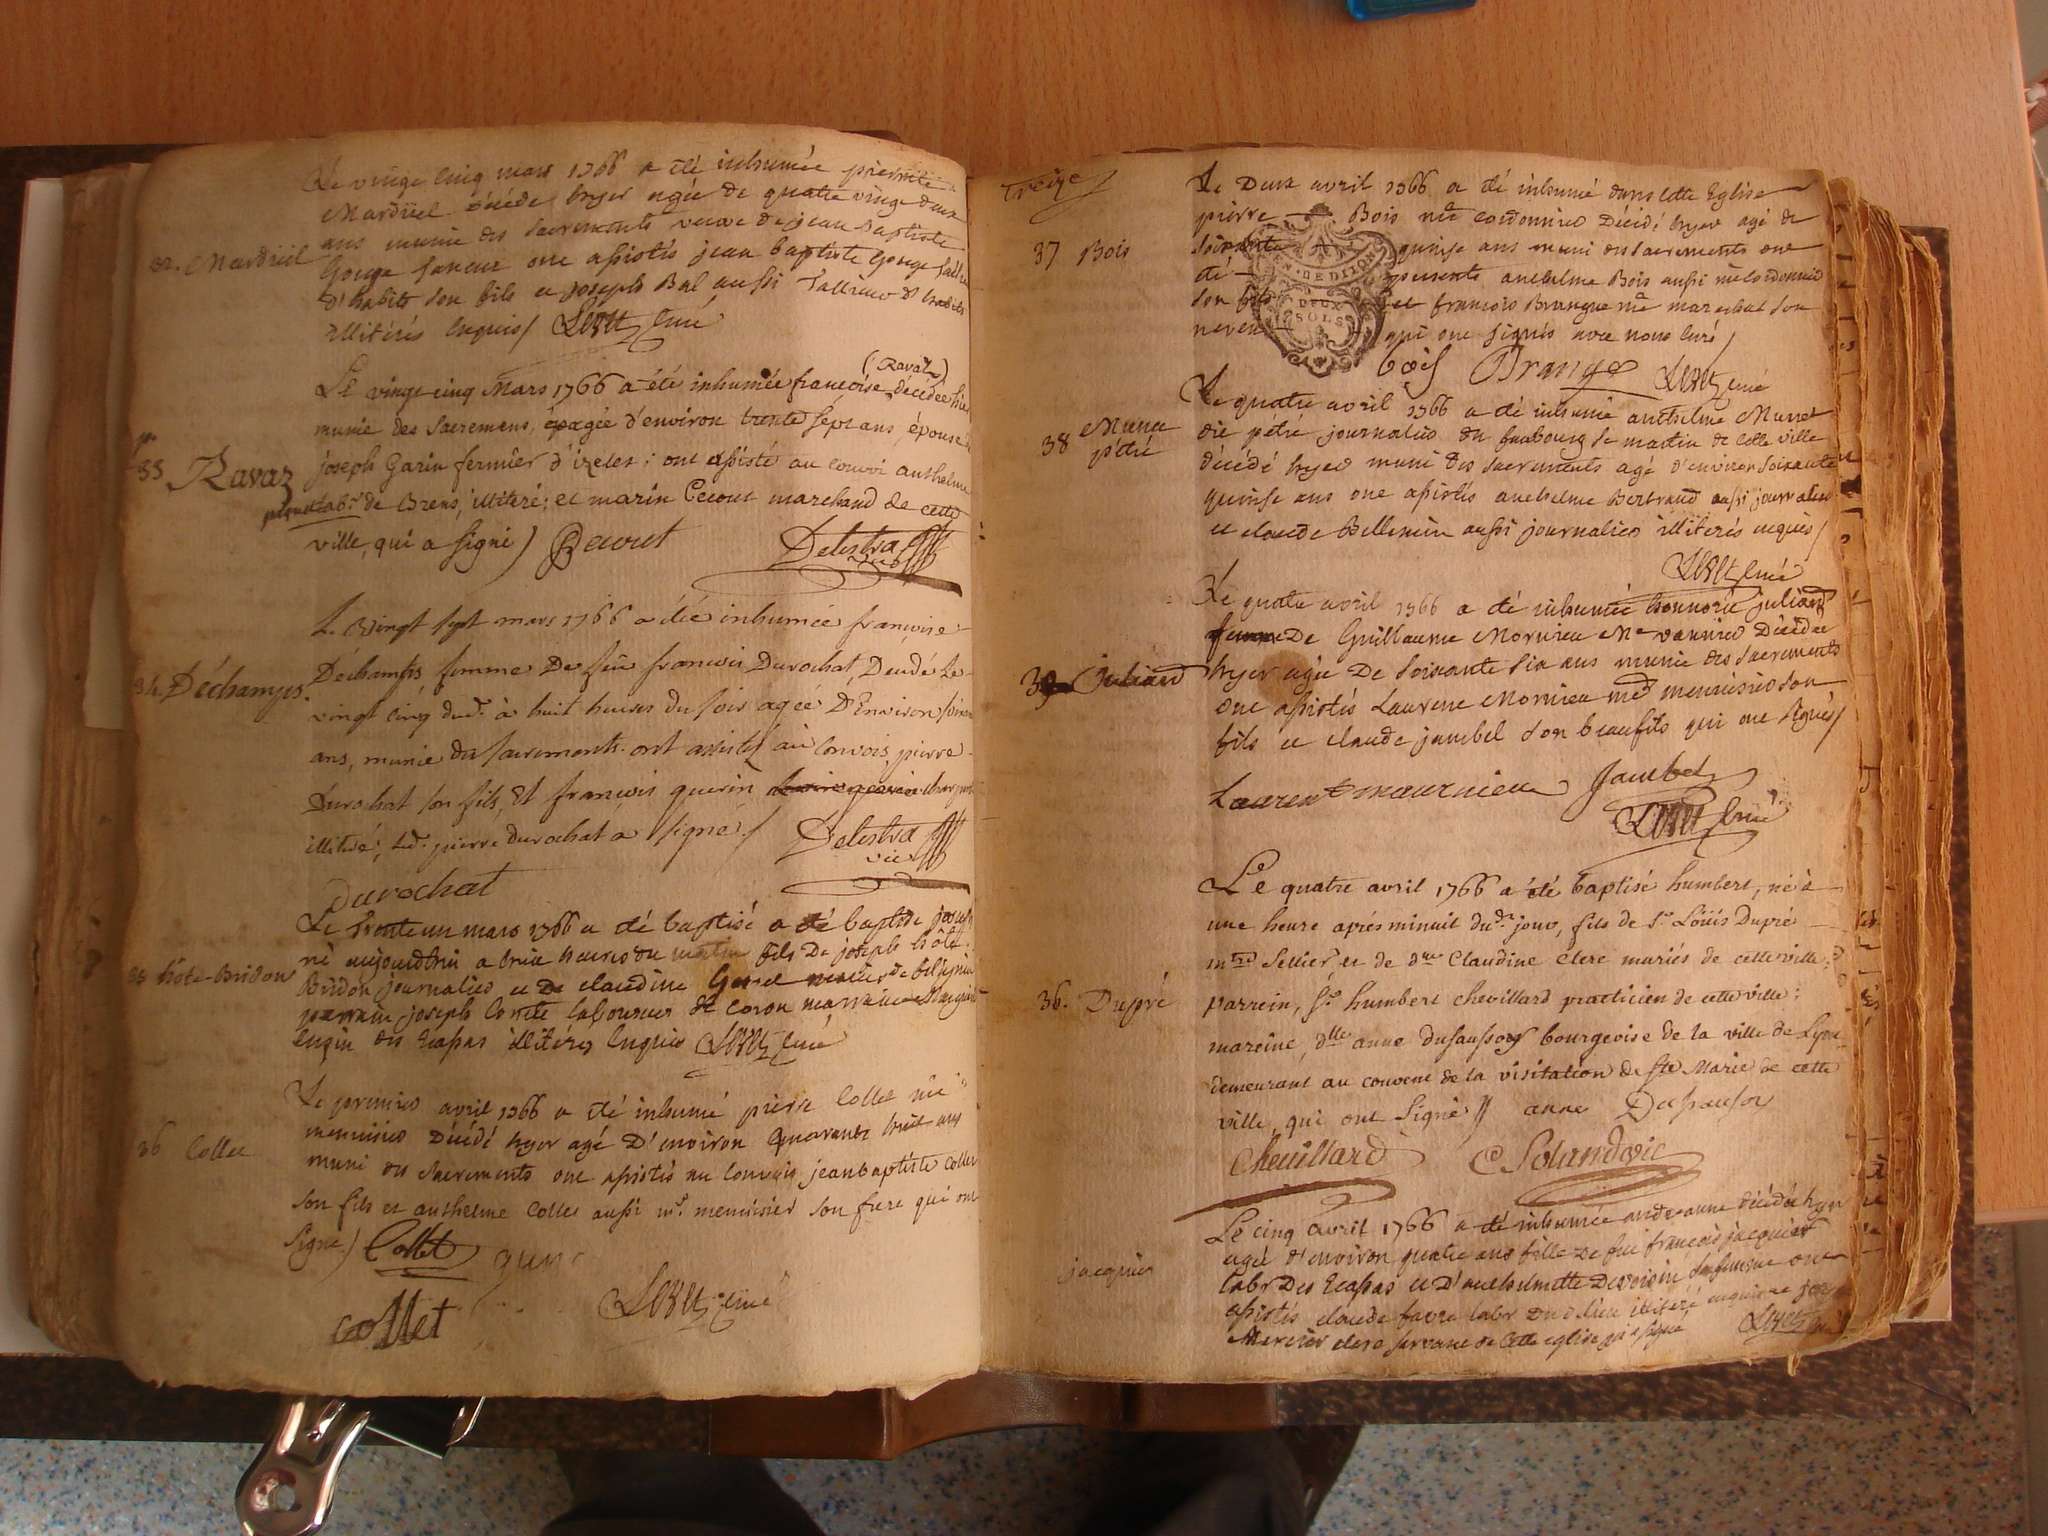 Le vingt cinq mars 1766 a été inhumée pierrette
Mardüel décédé hyer agée de quatre vingt deux
ans munie des sacrements veuve de jean Baptiste
Gouge ont assistés jean baptiste Gouge
d'habits son fils et joseph Bal aussi Tallieur d'habits
illitérés enquis / curé
32. Mardüel
(Ravaz)
Le vingt-cinq Mars 1766 a été inhumée francoise decedee hier
munie des sacremens, agée d'environ trente sept ans, épouse de
joseph Garin fermier d'izelet; ont assisté au convoi anthelme
labr. de Brens, illiteré; et marin Pecout marchand de cette
ville, qui a signé) Pecout Delestra
33 Ravaz
Le vingt sept mars 1766 a été inhumée francoise
Déchamps femme De feu francois Durochat, Décédé Le
vingt cinq dud. à huit heures du soir agée D'Environ
ans, munie des sacrements. ont assisté au Convois, pierre
Durochat son fils, Et francois guerin
illitéré, led. pierre durochat a signé / Delestra
vic
Durochat
34. Déchamps.
Le trente un mars 1766 a été baptisé a été baptisé joseph
né aujourdhui a huit heures du matin fils De joseph hôte
Bridon journalier et De claudine mariés
parrain joseph Comte laboureur de Coron marraine
des Ecassas illitérés Enquis curé
35 hôte-Bridon
Le premier avril 1766 a été inhumé pierre Collet me
menuisier Décédé hyer agé D'environ Quarante huit ans
muni des sacrements ont assistés au Convois jean baptiste Collet
son fils et anthelme Collet aussi m. menuisier son frere qui ont
signé) Collet
collet curé
36 Collet
treize
Le Deux avril 1766 a été inhumé dans cette Eglise
pierre Bois me cordonnier Décédé hyer agé de
soixante quinze ans muni des sacrements ont
été présents anthelme Bois aussi me cordonnier
son fils et francois Brangue me marechal son
neveu qui ont signés avec nous curé /
GEN. DE DIJON
DEUX
SOLS
bois Brange curé
37 Bois
Le quatre avril 1766 a été inhumé anthelme Munet
dit pétré journalier du fauxbourg st martin de cette ville
décédé hyer muni des sacrements agé d'environ soixante
quinze ans ont assistés anthelme Bertrand aussi journalier
et claude Bellemin aussi journalier illitérés enquis /
curé
38 Munet
pétré
Le quatre avril 1766 a été inhumée honnorée juliand
femme De Guillaume Mornieu Me vannier Décédée
hyer agée De soixante six ans munie des sacrements
ont assistés Laurent Mornieu me menuisier son
fils et claude jambel son beaufils qui ont signés /
Laurent mournieu Jambel
curé
39 Juliand
Le quatre avril 1766 a été baptisé humbert, né à
une heure aprés minuit dud. jour, fils de sr. Loüis Dupré
mtre Sellier et de dme Claudine Clerc mariés de cette ville;
parrein, sr. humbert Chevillard practicien de cette ville;
mareine, dlle anne dusaussoy bourgeoise de la ville de Lyon
demeurant au convent de la visitation de Ste Marie de cette
ville, qui ont signé // anne Dusausoy
Chevillard
36. Dupré
Le cinq avril 1766 a été inhumée anne décédée hyer
agée d'environ quatre ans fille de feu francois jacquier
labr Des Ecassas et D'anthelmette Devoisin sa femme ont
assistés claude favre labr dud. lieu illitéré enquis et
Mercier clerc servant de cette eglise qui a signé
jacquier